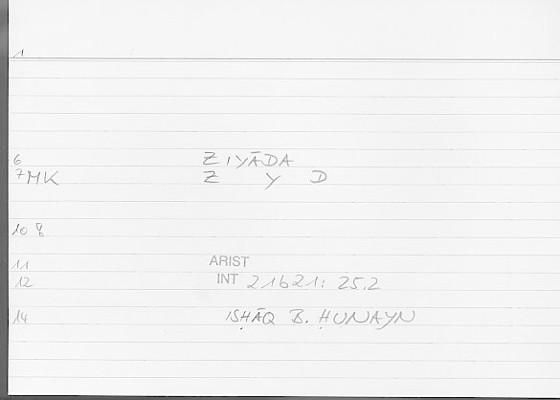 1
6 ZIYĀDA
7 MK Z Y D
10 8
11 ARIST
12 INT 21b21: 25.2
14 ISḤĀQ B. ḤUNAYN